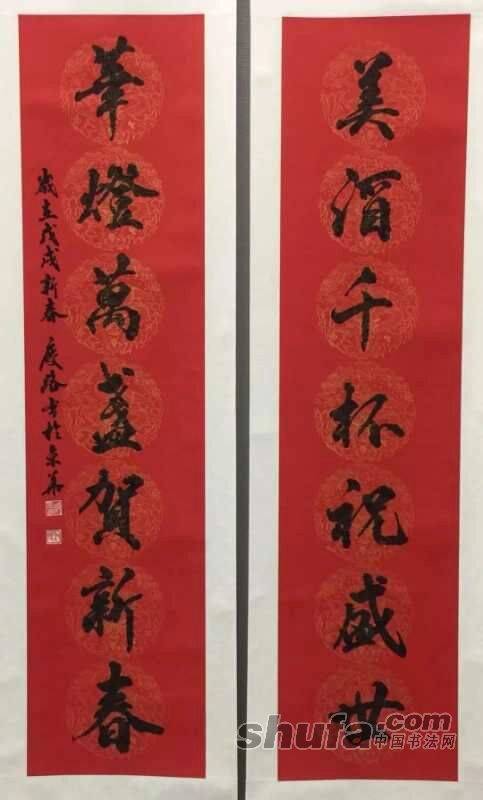 美酒千杯祝盛世
華燈萬盞賀新春
歲在戊戌新春
書於京華
shufa.com
中国书法网